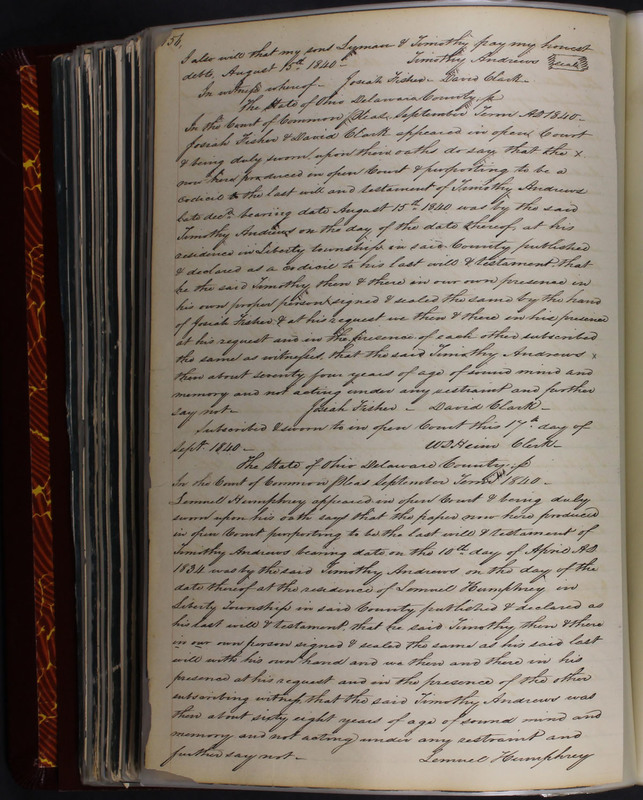 156,
I also will that my sons Lyman & Timothy pay my honest
debts, August 15th 1840 - Timothy Andrews seal
In witness whereof - Josiah Fisher - David Clark -
The State of Ohio Delaware County, ss
In the Court of Common Pleas September Term AD 1840 -
Josiah Fisher & David Clark appeared in open Court
& being duly sworn upon their oaths do say that the x
now here produced in open Court & purporting to be a
codicil to the last will and testament of Timothy Andrews
late decd. bearing date August 15th 1840 was by the said
Timothy Andrews on the day of the date thereof, at his
residence in Liberty township in said County published
& declared as a codicil to his last will & testament, that
he the said Timothy then & there in our own presence in
his own proper person signed & sealed the same by the hand
of Josiah Fisher & at his request we then & there in his presence
at his request and in the presence of each other subscribed
the same as witnesses, that the said Timothy Andrews x
then about seventy four years of age of sound mind and
memory and not acting under any restraint and further
say not - Josiah Fisher - David Clark -
Subscribed & sworn to in open Court this 17th day of
Sept. 1840 - Clerk -
The State of Ohio Delaware County, ss
In the Court of Common Pleas September Term 1840 -
Lemuel Humphrey appeared in open Court & being duly
sworn upon his oath says that the paper now here produced
in open Court purporting to be the last will & testament of
Timothy Andrews bearing date on the 10th day of April AD
1834 was by the said Timothy Andrews on the day of the
date thereof at the residence of Lemuel Humphrey in
Liberty Township in said County published & declared as
his last will & testament, that he said Timothy then & there
in our own person signed & sealed the same as his said last
will with his own hand and we then and there in his
presence at his request and in the presence of the other
subscribing witness, that the said Timothy Andrews was
then about sixty eight years of age of sound mind and
memory and not acting under any restraint and
further say not - Lemuel Humphrey